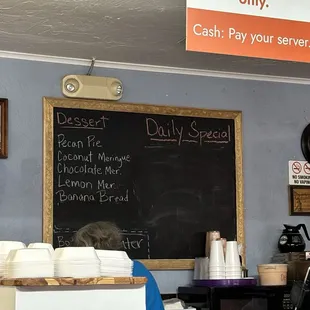 only.
Cash: Pay your server.
Dessert
Daily Special
Pecan Pie
Coconut Meringue
Chocolate Mer.
Lemon Mer.
Banana Bread
NO SMOKING
NO VAPING